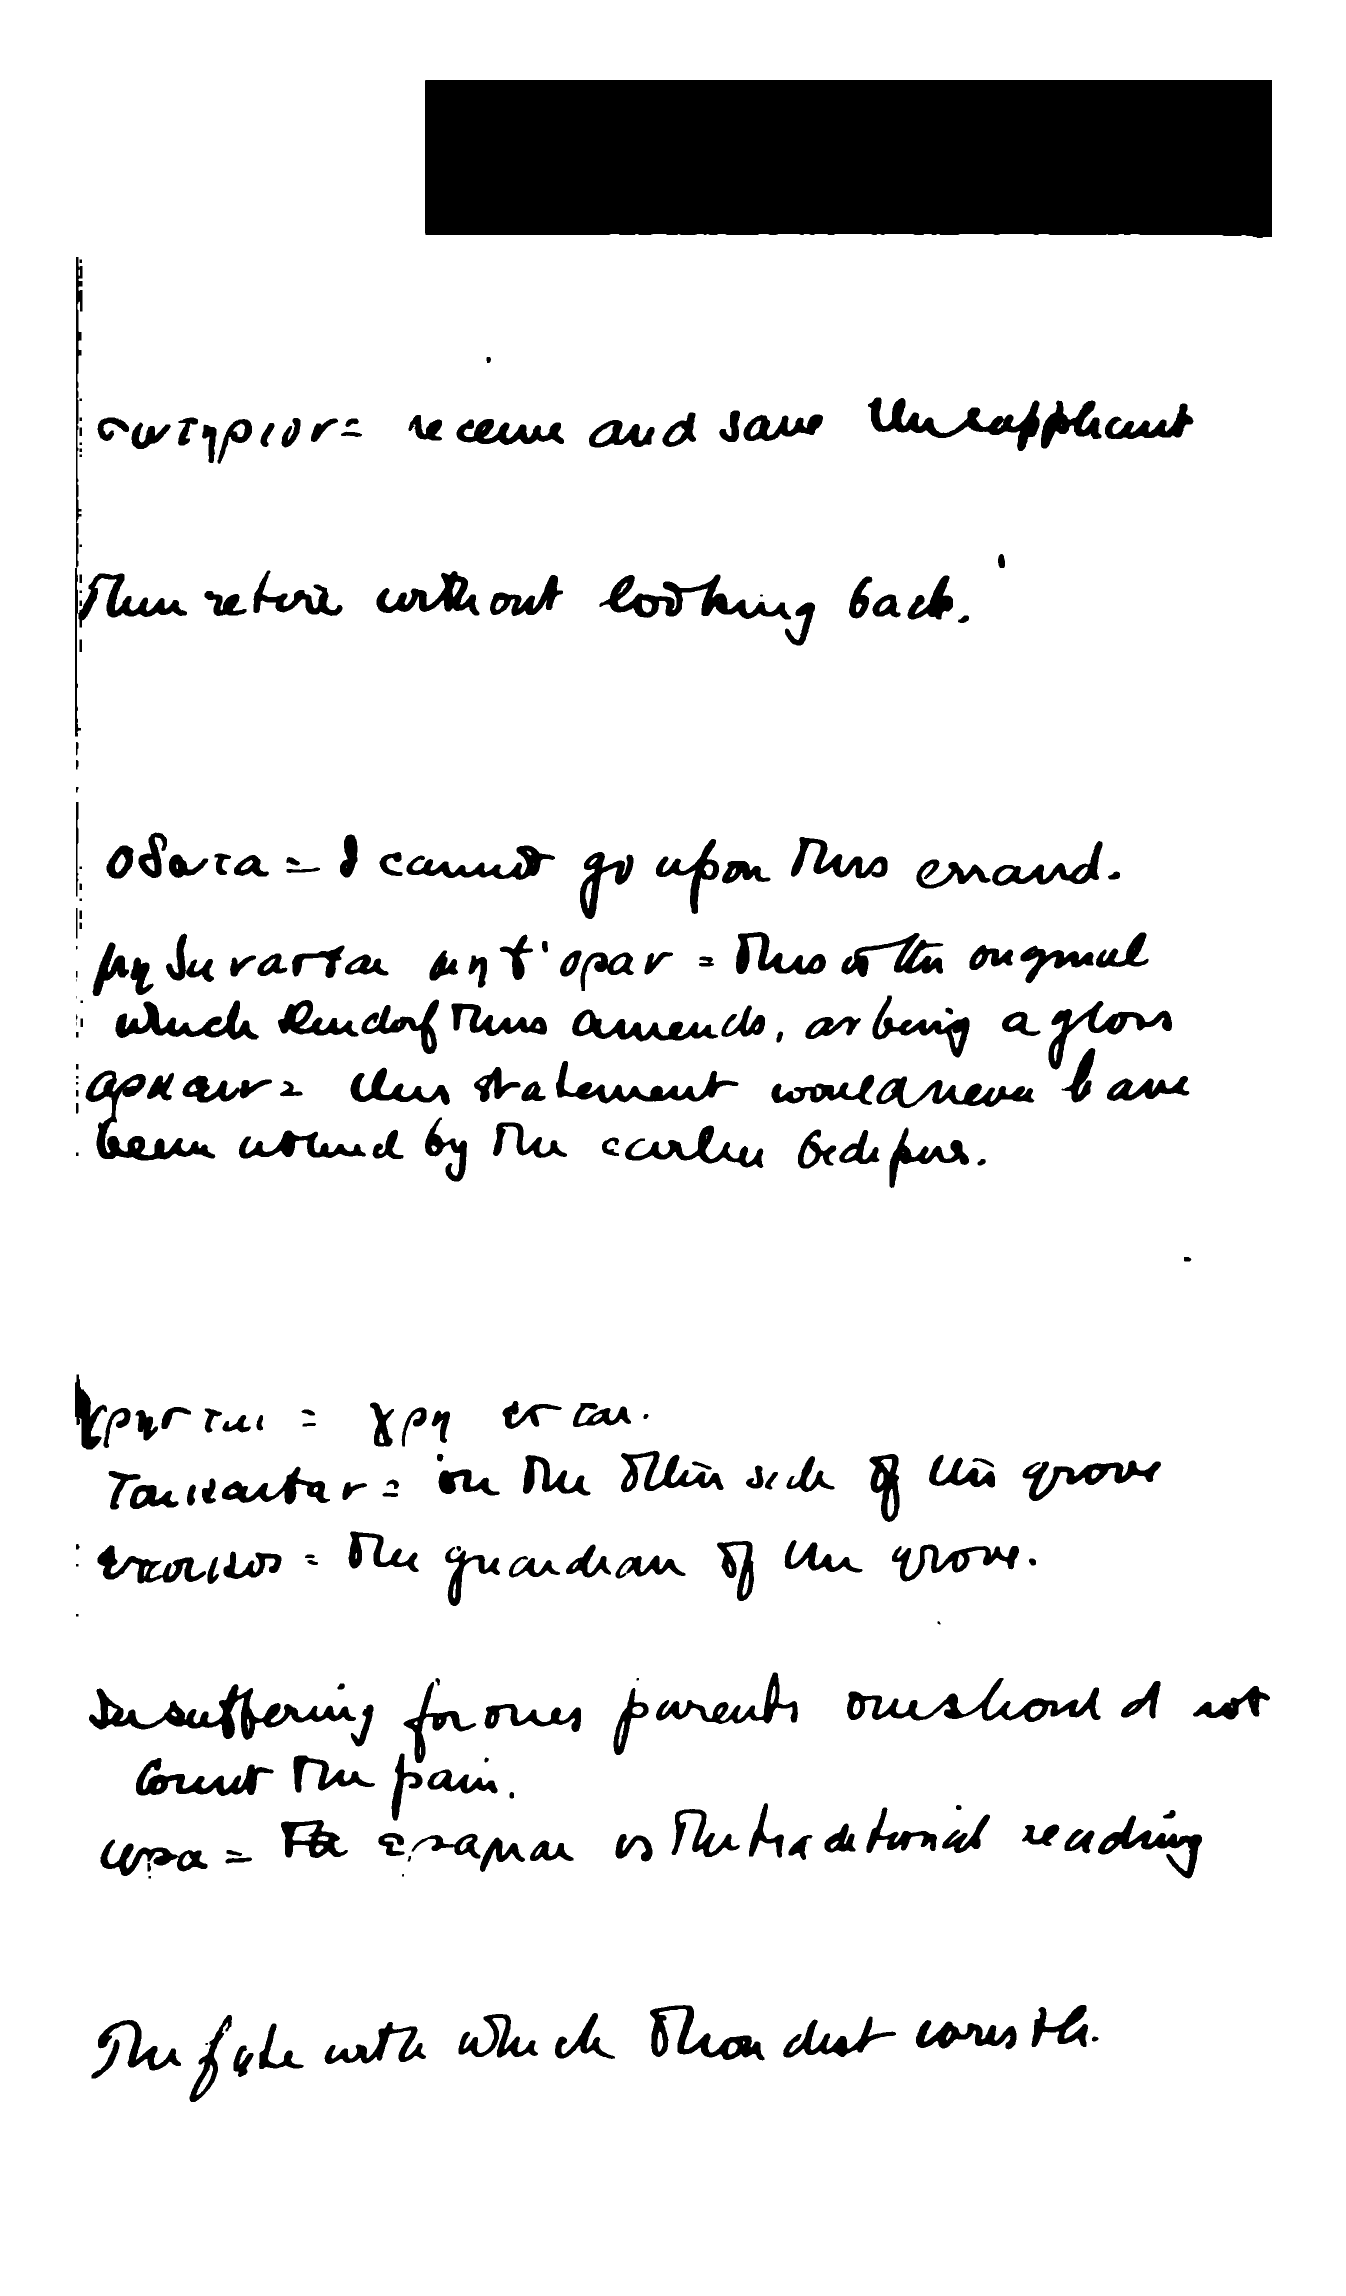 σωτηριον = receive and save the suppliant
Then retire without looking back.
οδωτα = I cannot go upon this errand.
μη δυνασθαι μητ' οραν = this is the original
which Dindorf thus amends, as being a gloss
αρκειν = this statement would never have
been uttered by the earlier Oedipus.
χρησται = χρη εσται.
τουκειθεν = on the other side of this grove
εποικος = the guardian of the grove.
In suffering for ones parents one should not
count the pain.
is the traditional reading
The fate with which thou dost wrestle.